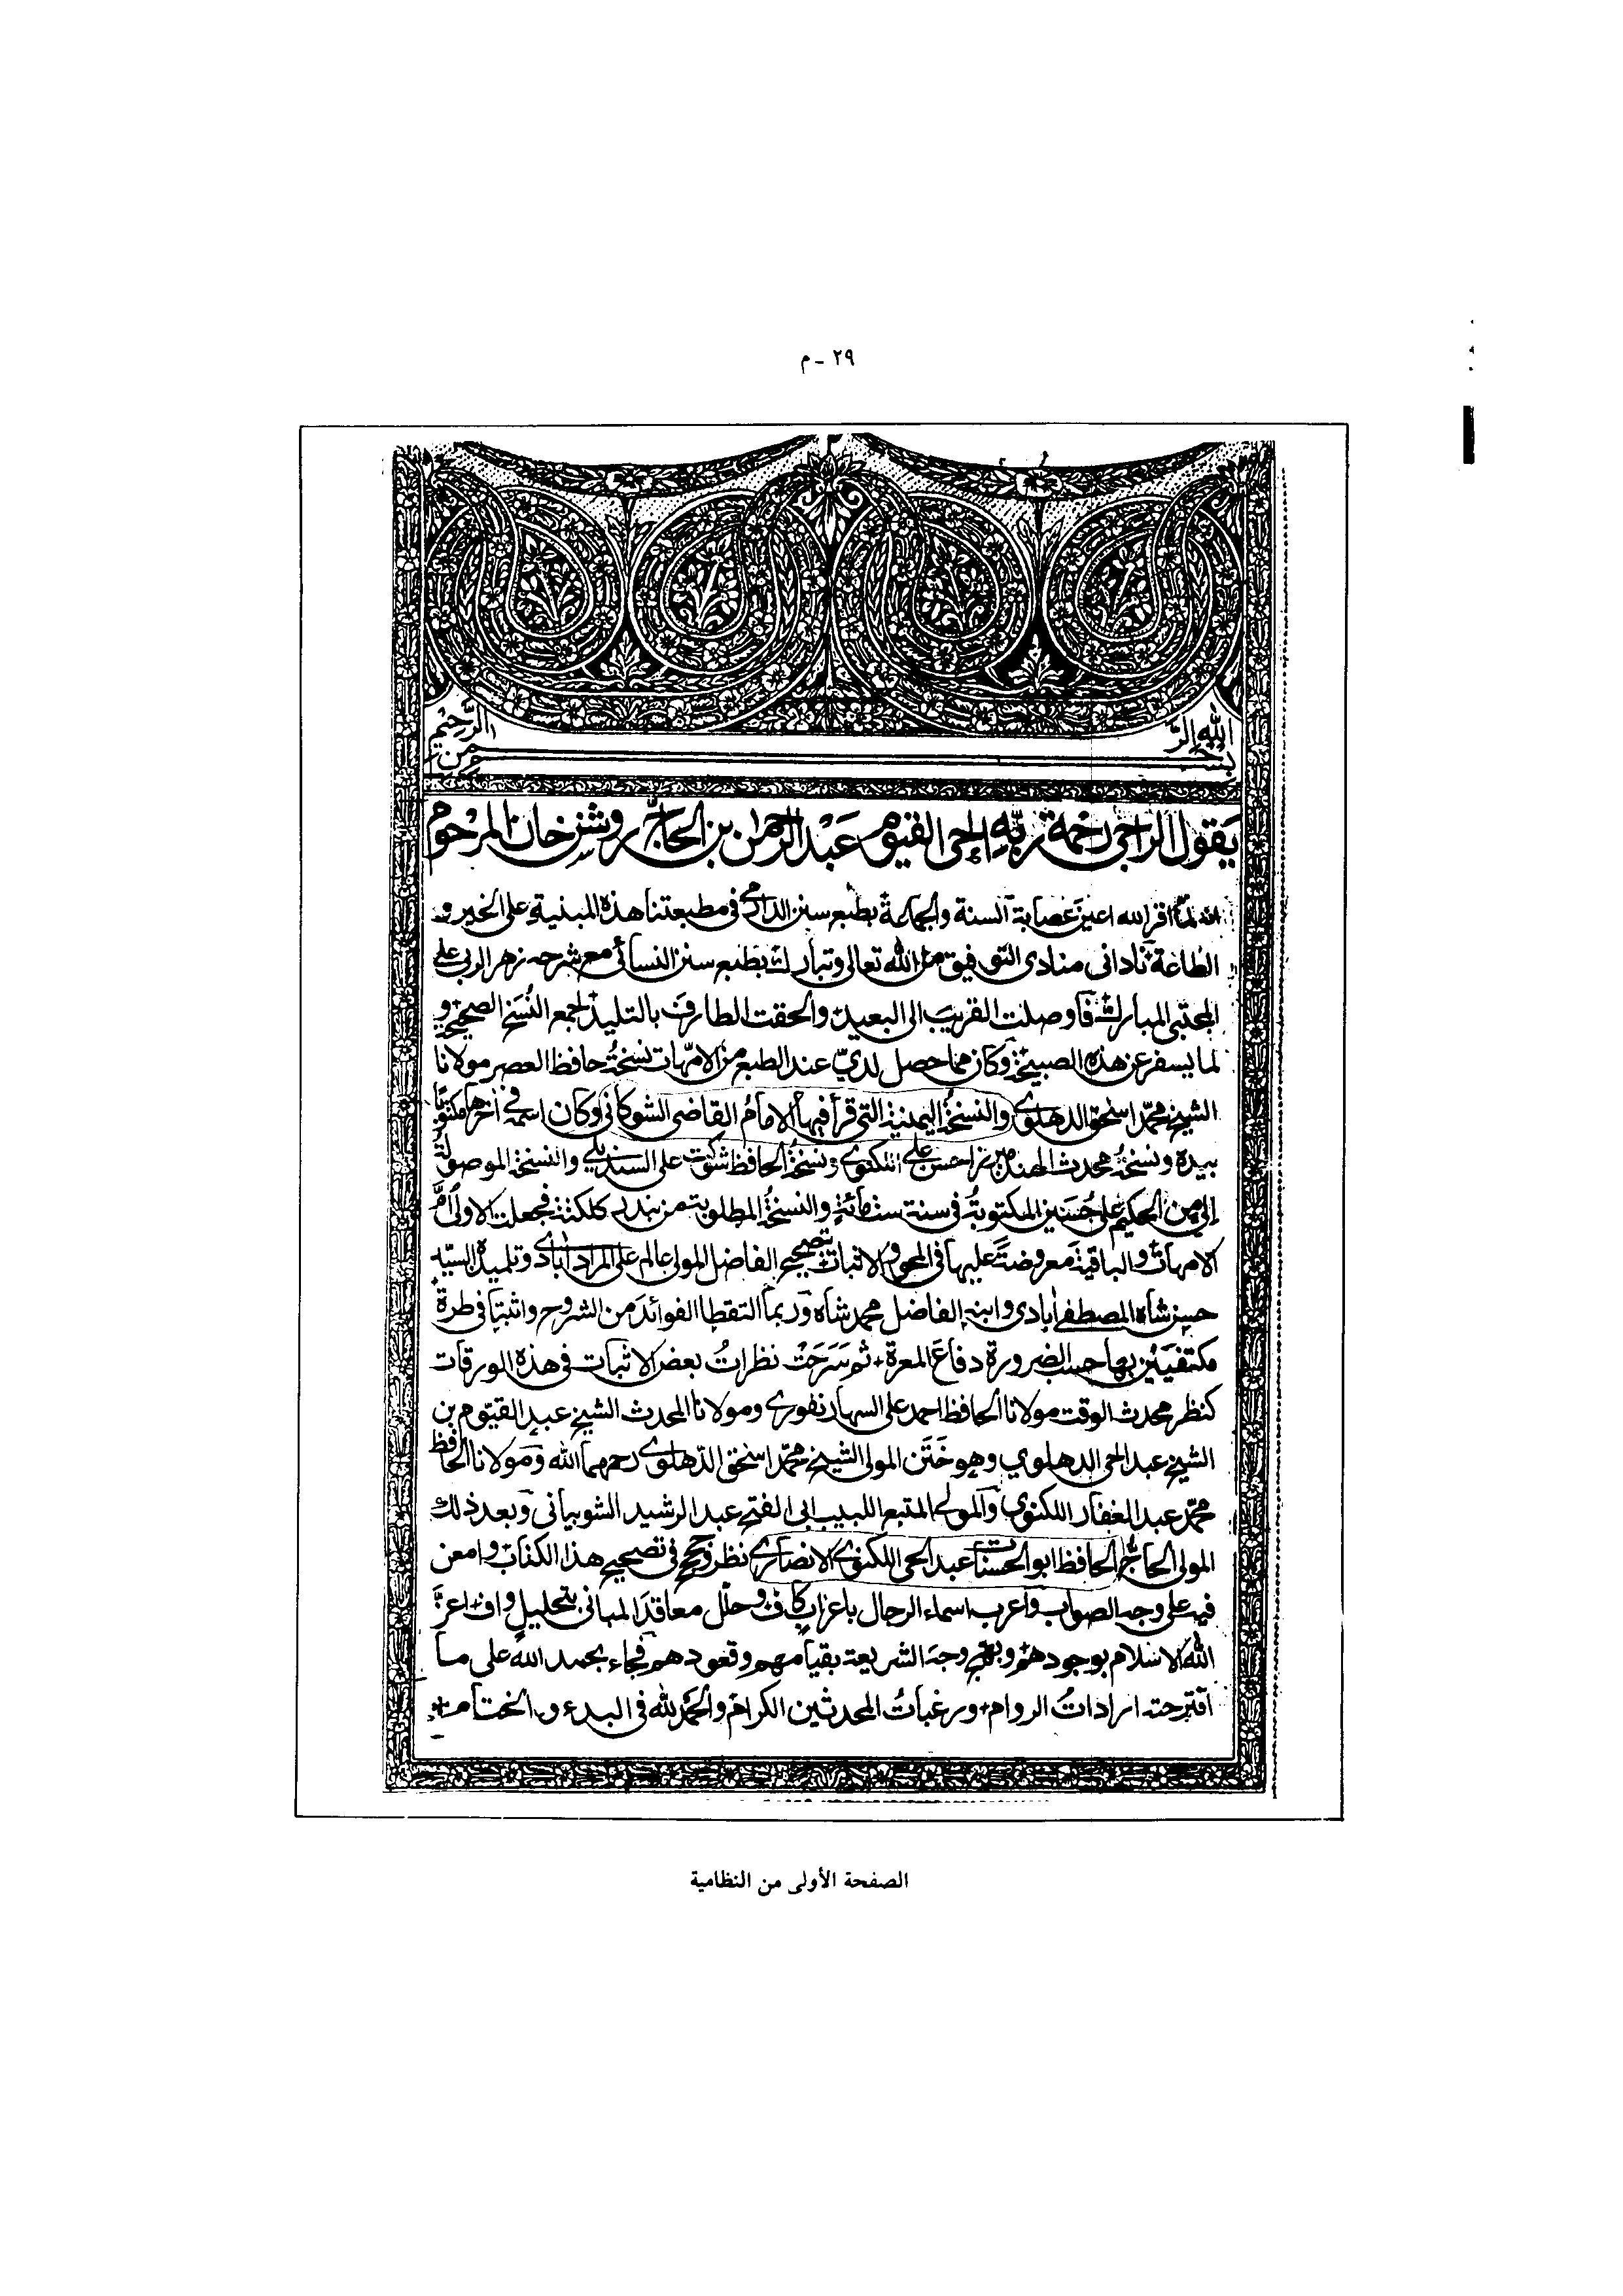 ٢٩ - م
بسم الله الرحمن الرحيم
يقول الراجي رحمة ربه الحي القيوم عبد الرحمن بن الحاج روشن خان المرحوم
انه لما اقر الله اعين عصابة السنة والجماعة بطبع سنن الدارمي في مطبعتنا هذه المبنية على الخير و
الطاعة ناداني منادى التوفيق من الله تعالى وتبارك بطبع سنن النسائي مع شرحه زهر الربى على
المجتبى المبارك فأوصلت القريب الى البعيد والحقت الطارف بالتليد لجمع النسخ الصحيحة و
لما يسفر عن هذه الصبيحة وكان مما حصل لدي عند الطبع من الامهات نسخة حافظ العصر مولانا
الشيخ محمد اسحق الدهلوي والنسخة اليمنية التي قرأ فيها الامام القاضي الشوكاني وكان اسمه في آخرها مكتوبا
بيده ونسخة محدث الهند ميرزا حسن علي اللكنوي ونسخة الحافظ شوكت علي السنديلي والنسخة الموصولة
إلي من الحكيم علي حسين المكتوبة في سنة ستمائة والنسخة المطلوبة من بندر كلكته فجعلت الاولى أم
الامهات والباقية معروضة عليها في المحو والاثبات بتصحيح الفاضل المولى عالم علي المرادابادي وتلميذه السيد
حسين شاه المصطفى ابادي وابنه الفاضل محمد شاه وربما التقطا الفوائد من الشروح واثبتا في طرة
مكتفيين بها حسب الضرورة دفاع المعرة ثم سرحت نظرات بعض الاثبات في هذه الورقات
كنظر محدث الوقت مولانا الحافظ احمد علي السهارنفوري ومولانا المحدث الشيخ عبد القيوم بن
الشيخ عبد الحي الدهلوي وهو ختن المولى الشيخ محمد اسحق الدهلوي رحمهما الله ومولانا الحافظ
محمد عبد الغفار اللكنوي والمولى المتبع اللبيب ابي الفتح عبد الرشيد الشوبياني وبعد ذلك
المولى الحاج الحافظ ابو الحسنات عبد الحي اللكنوي الانصاري نظر في تصحيح هذا الكتاب وامعن
فيه على وجه الصواب واعرب اسماء الرجال باعراب كاف وحلل معاقد المباني بتحليل واف اعز
الله الاسلام بوجودهم وجه الشريعة بقيامهم وقعودهم فجاء بحمد الله على ما
اقترحته ارادات الروام ورغبات المحدثين الكرام والحمد لله في البدء والختام
الصفحة الأولى من النظامية